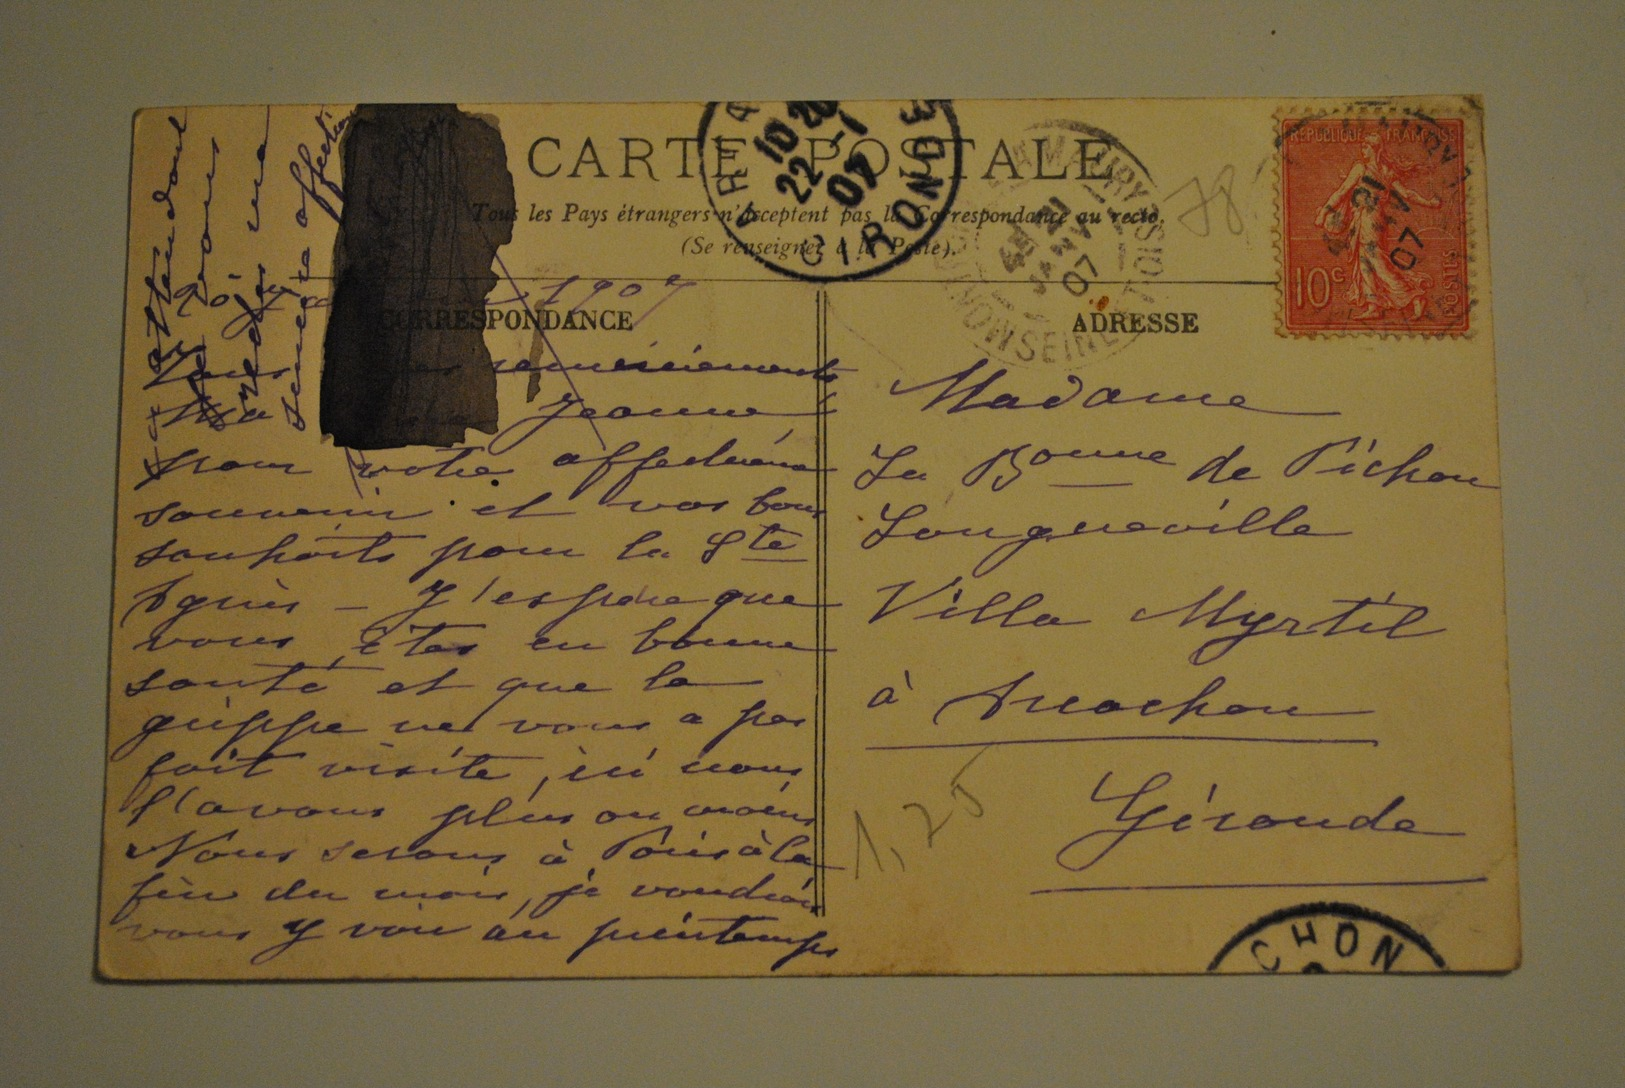 CARTE POSTALE
Tous les Pays étrangers n'acceptent pas la Correspondance au recto.
(Se renseigner à la Poste).
CORRESPONDANCE
ADRESSE
1907
remerciements
Jeanne
pour votre affectueux
souvenir et vos bons
souhaits pour la Ste
Agnès – J'espère que
vous êtes en bonne
santé et que la
grippe ne vous a pas
fait visite, ici nous
l'avons plus ou moins
Nous serons à Paris à la
fin du mois, je voudrais
vous y voir au printemps
en attendant
recevez ma
sincère affection
Madame
La Bonne de Pichon
Longueville
Villa Myrtil
à Arcachon
Gironde
1,20
78
REPUBLIQUE FRANÇAISE
10c
POSTES
21
07
ARCA
10 20
22 -1
07
GIRONDE
21
07
SEINE ET OISE
CHON